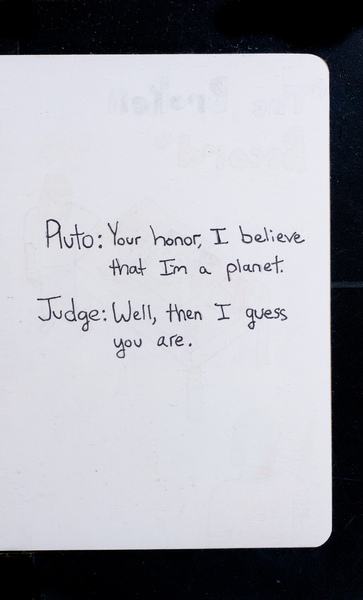 Pluto: Your honor, I believe
that I'm a planet.
Judge: Well, then I guess
you are.